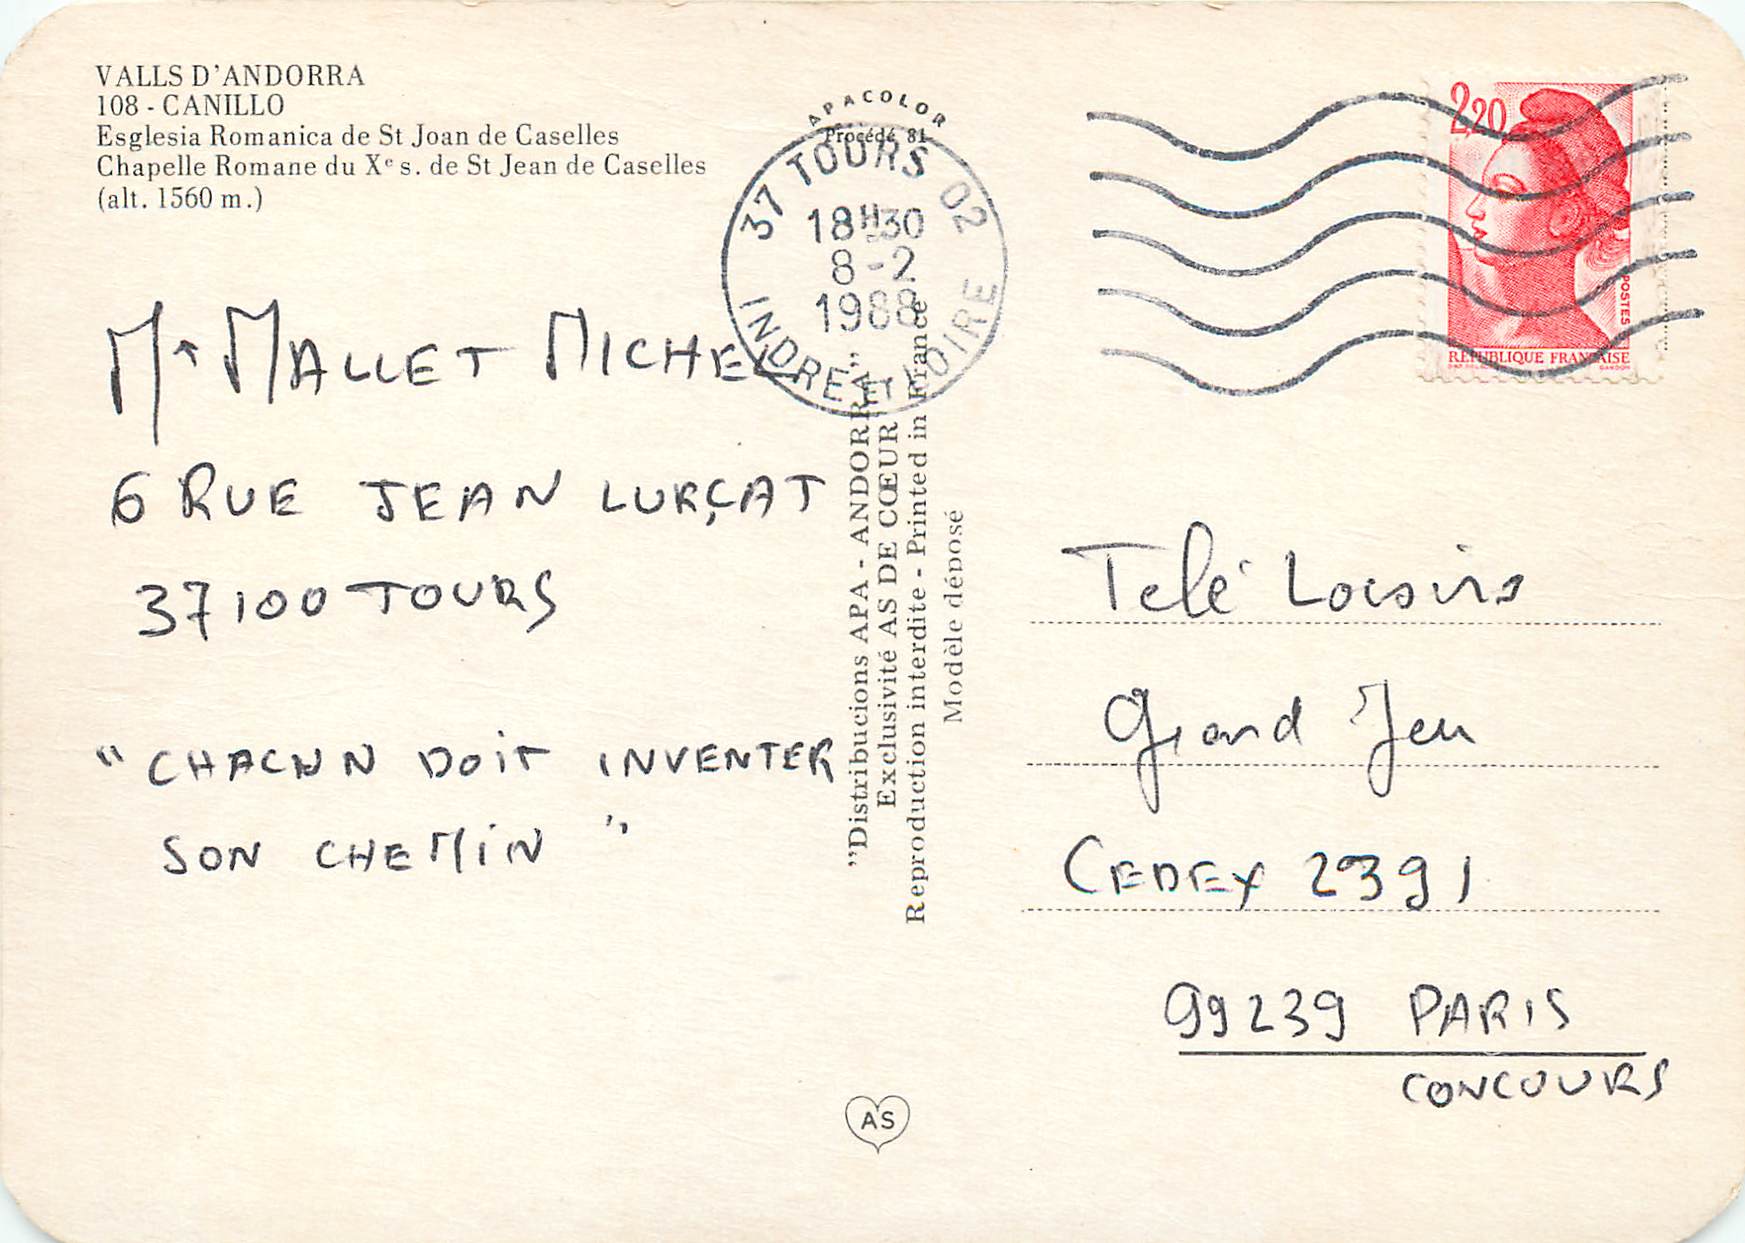 VALLS D'ANDORRA
108 - CANILLO
Esglesia Romanica de St Joan de Caselles
Chapelle Romane du Xe s. de St Jean de Caselles
(alt. 1560 m.)
APACOLOR
Procédé 81
37 TOURS 02
18H30
8-2
1988
INDRE ET LOIRE
2,20
POSTES
REPUBLIQUE FRANÇAISE
GANDON
Mr MALLET MICHEL
6 RUE JEAN LURÇAT
37100 TOURS
" CHACUN DOIT INVENTER
SON CHEMIN "
"Distribucions APA - ANDORRA"
Exclusivité AS DE CŒUR
Reproduction interdite - Printed in France
Modèle déposé
Telé Loisirs
Grand Jeu
CEDEX 2391
99239 PARIS
CONCOURS
AS